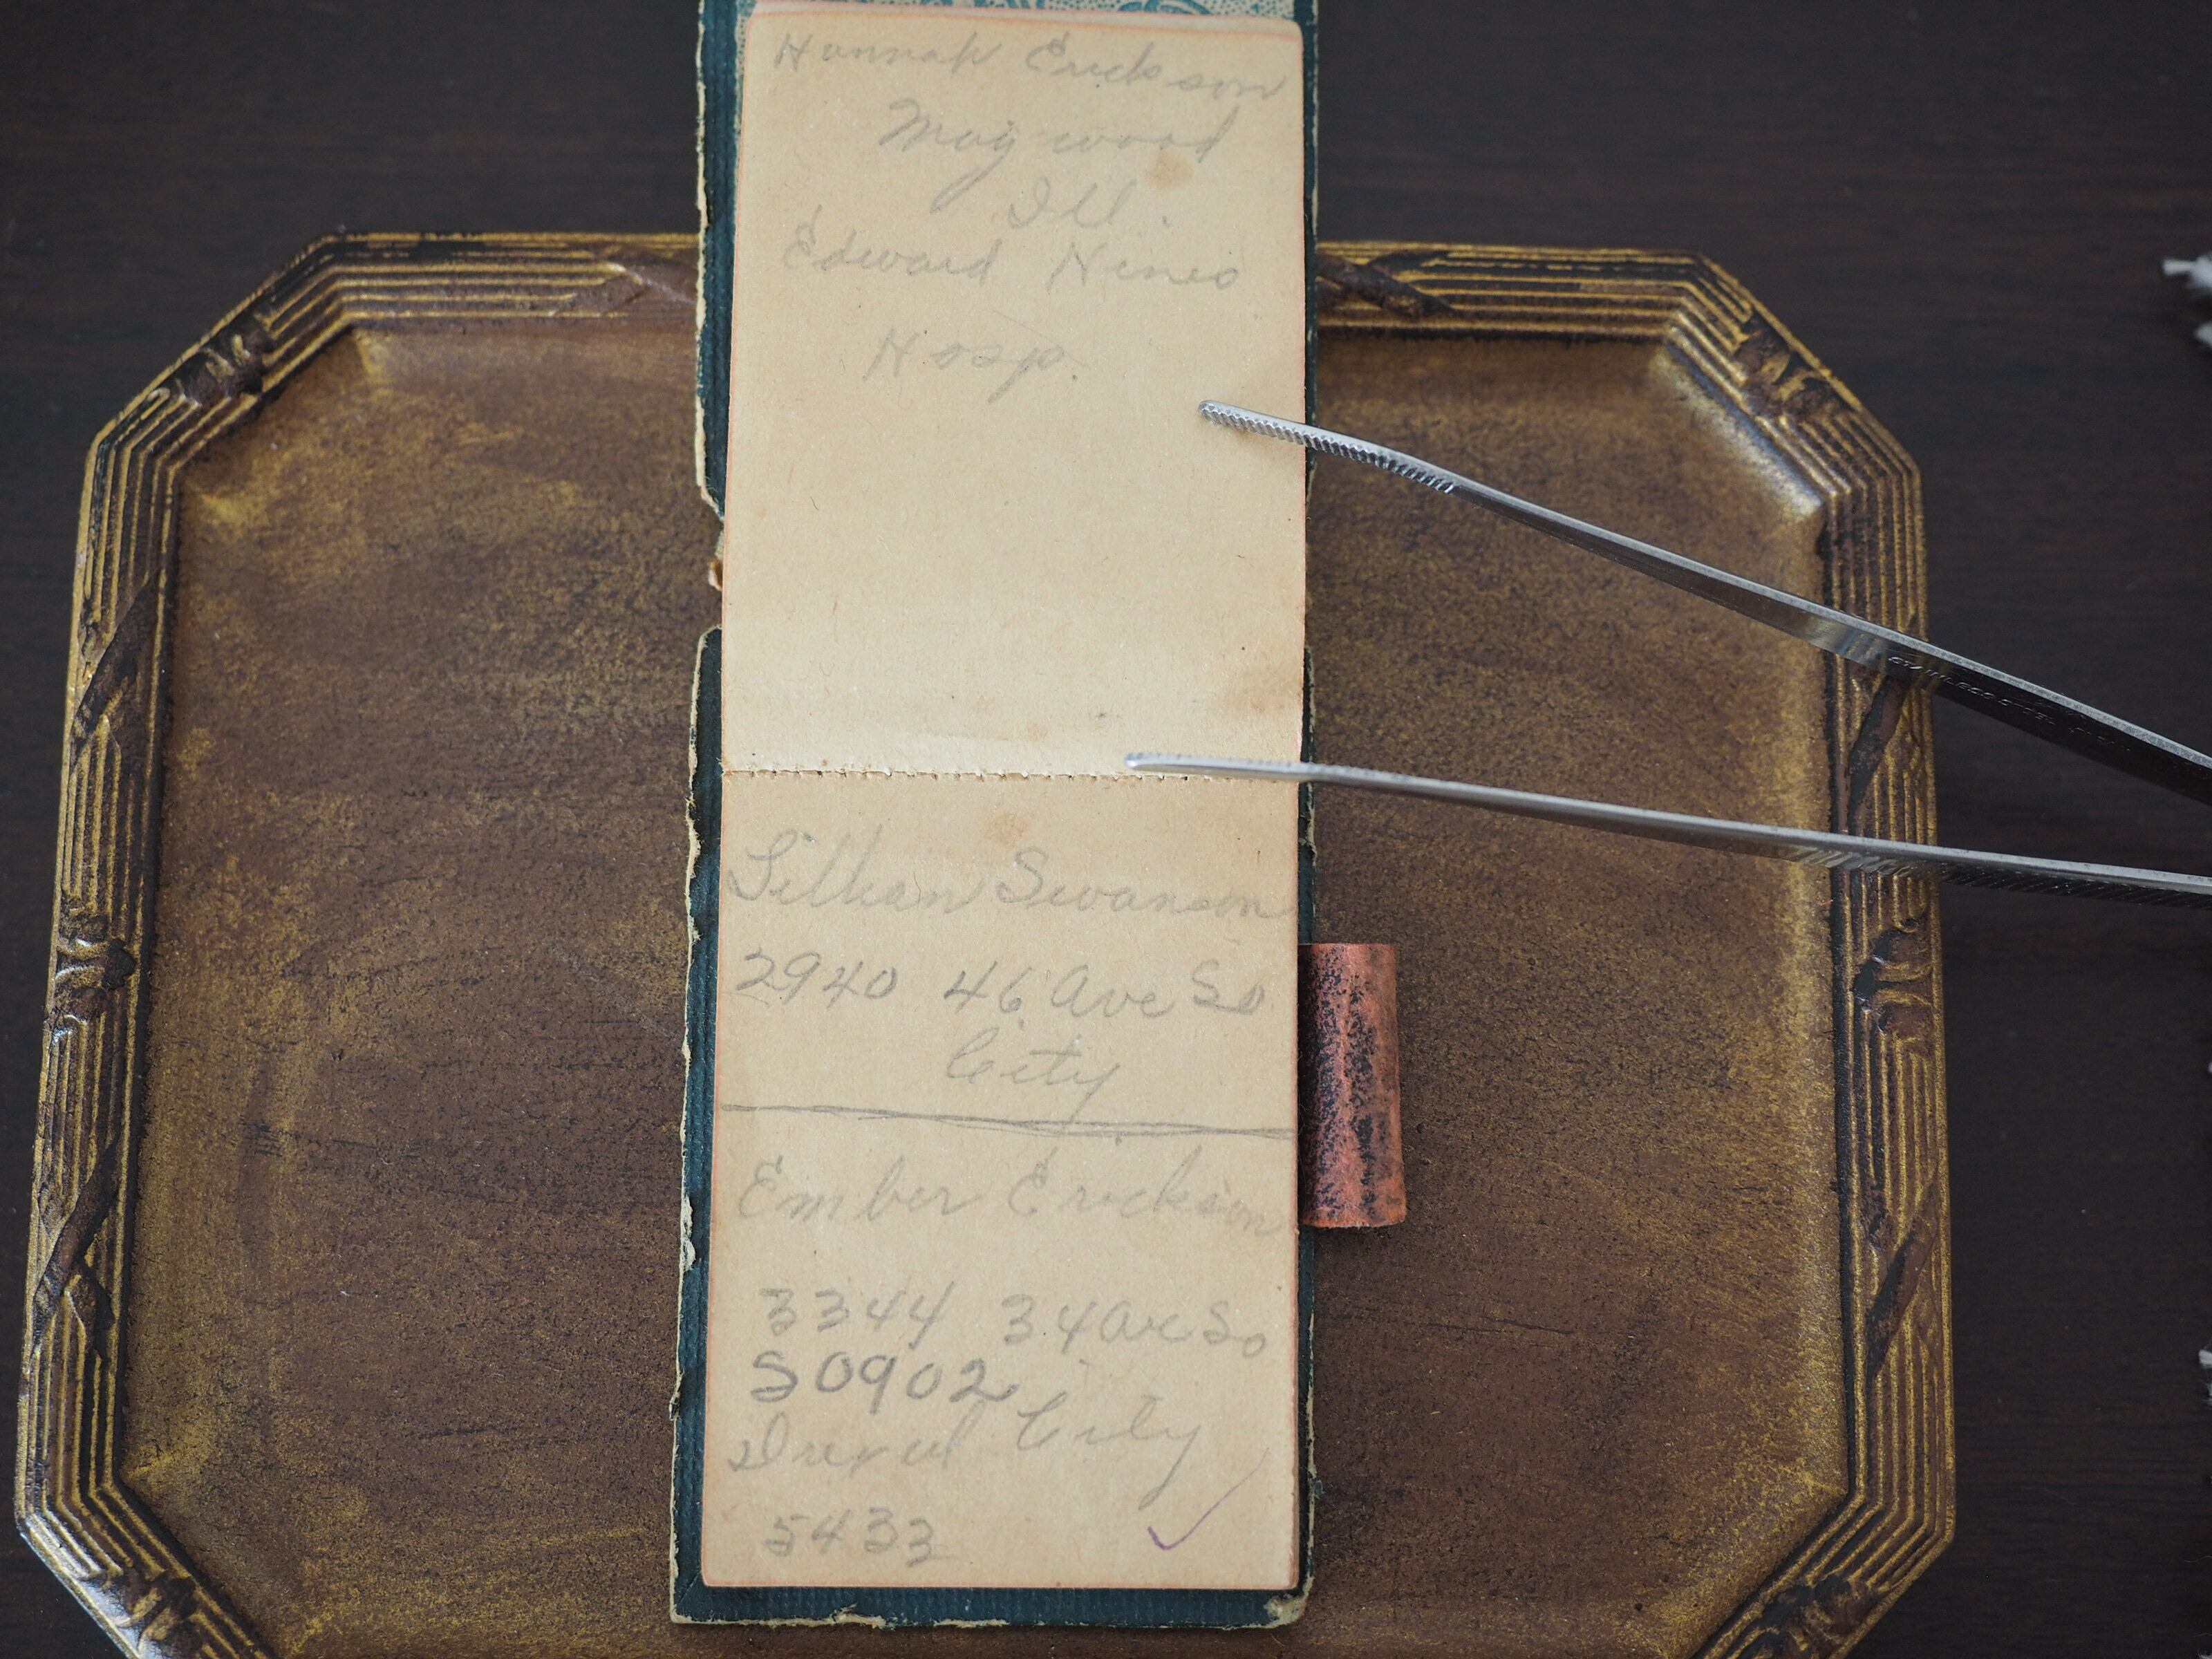 Hannah Erickson
Maywood
Ill.
Edward Hines
Hosp.
Lillian Swanson
2940 46 Ave So
City
Ember Erickson
3344 34 Ave So
S0902
Drexel City
5433
STAINLESS STEEL